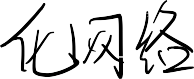 化网络